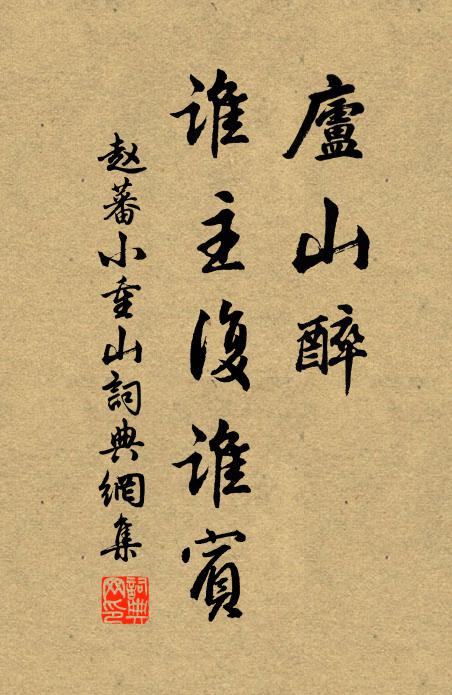 廬山醉
誰主復誰賓
赵蕃小重山詞典網集
詞典网印